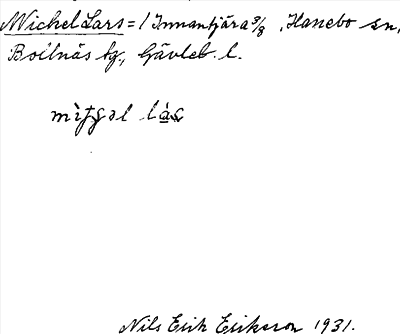 Michel Lars = 1 Innantjära 3/8, Hanebo sn,
Bollnäs tg., Gävleb. l.
Nils Erik Erikson 1931.